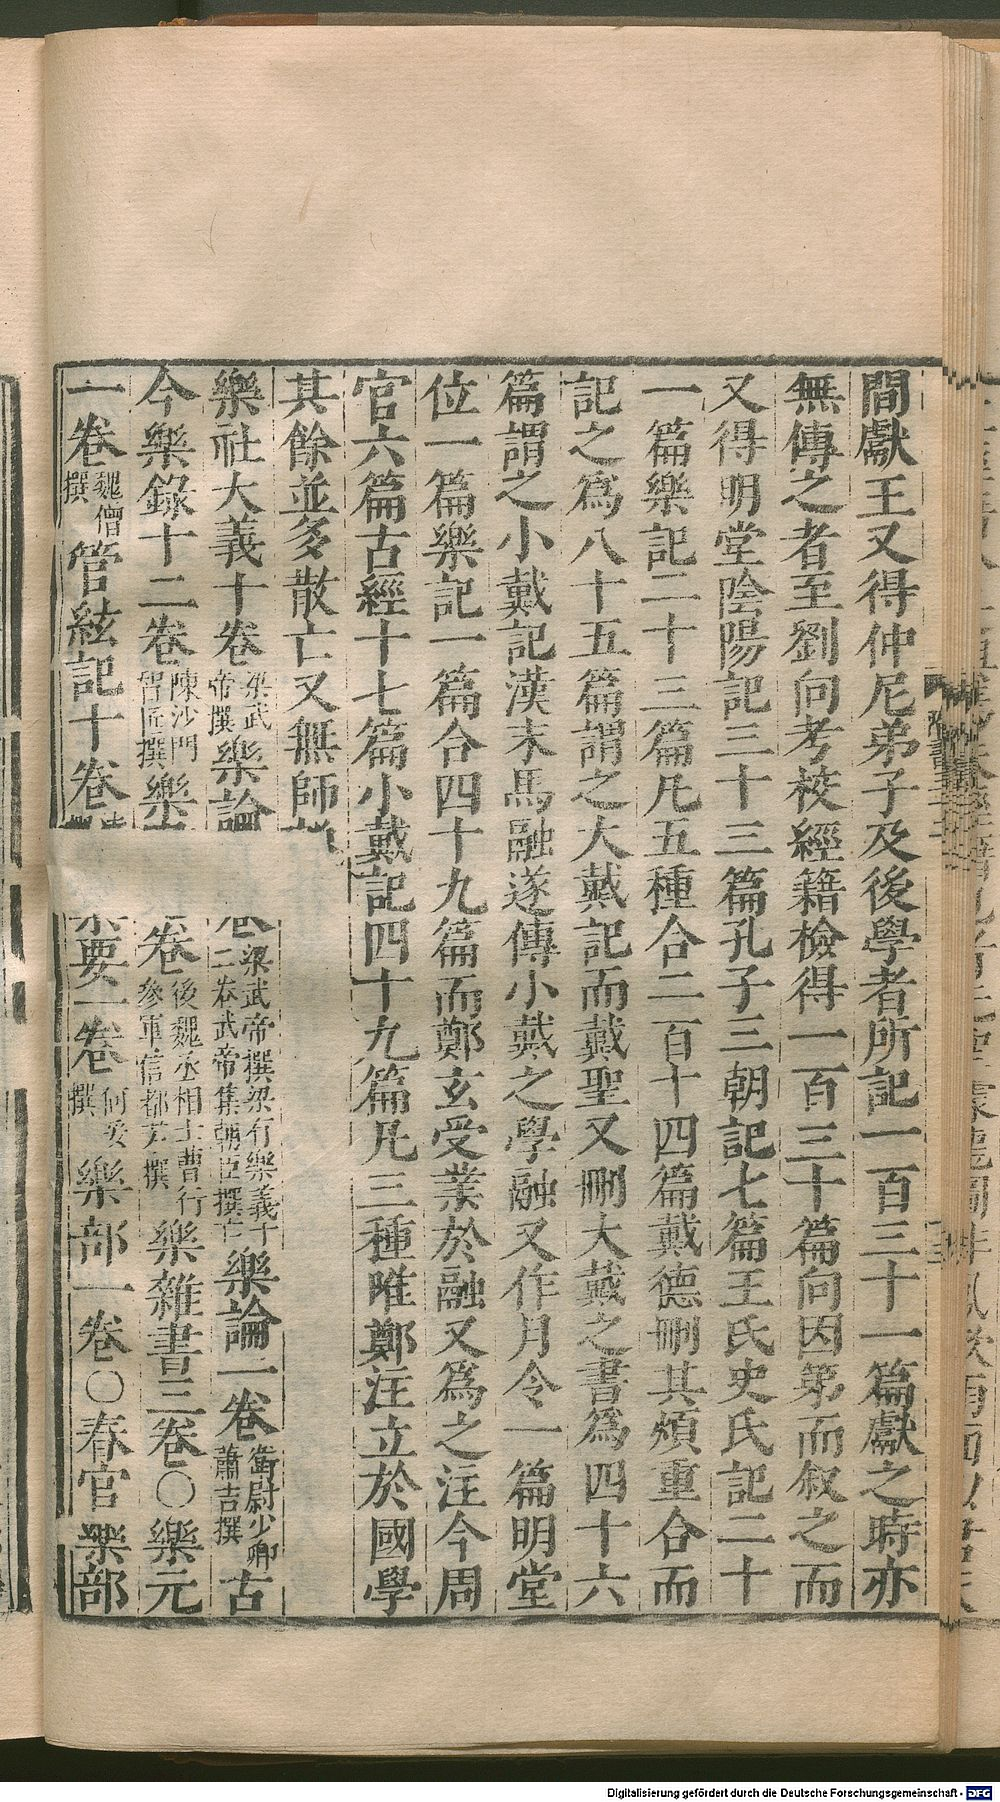 間獻王又得仲尼弟子及後學者所記一百三十一篇獻之時亦
無傳之者至劉向考校經籍檢得一百三十篇向因第而叙之而
又得明堂陰陽記三十三篇孔子三朝記七篇王氏史氏記二十
一篇樂記二十三篇凡五種合二百十四篇戴德刪其煩重合而
記之爲八十五篇謂之大戴記而戴聖又刪大戴之書爲四十六
篇謂之小戴記漢末馬融遂傳小戴之學融又作月令一篇明堂
位一篇樂記一篇合四十九篇而鄭玄受業於融又爲之注今周
官六篇古經十七篇小戴記四十九篇凡三種唯鄭注立於國學
其餘並多散亡又無師
樂社大義十卷梁武帝撰樂論卷梁武帝撰梁有樂義十一卷武帝集朝臣撰亡樂論一卷衛尉少卿蕭吉撰古
今樂錄十二卷陳沙門智匠撰樂卷後魏丞相士曹行參軍信都芳撰樂雜書三卷〇樂元
一卷魏僧撰管絃記十卷要一卷何妥撰樂部一卷〇春官樂部
Digitalisierung gefördert durch die Deutsche Forschungsgemeinschaft - DFG